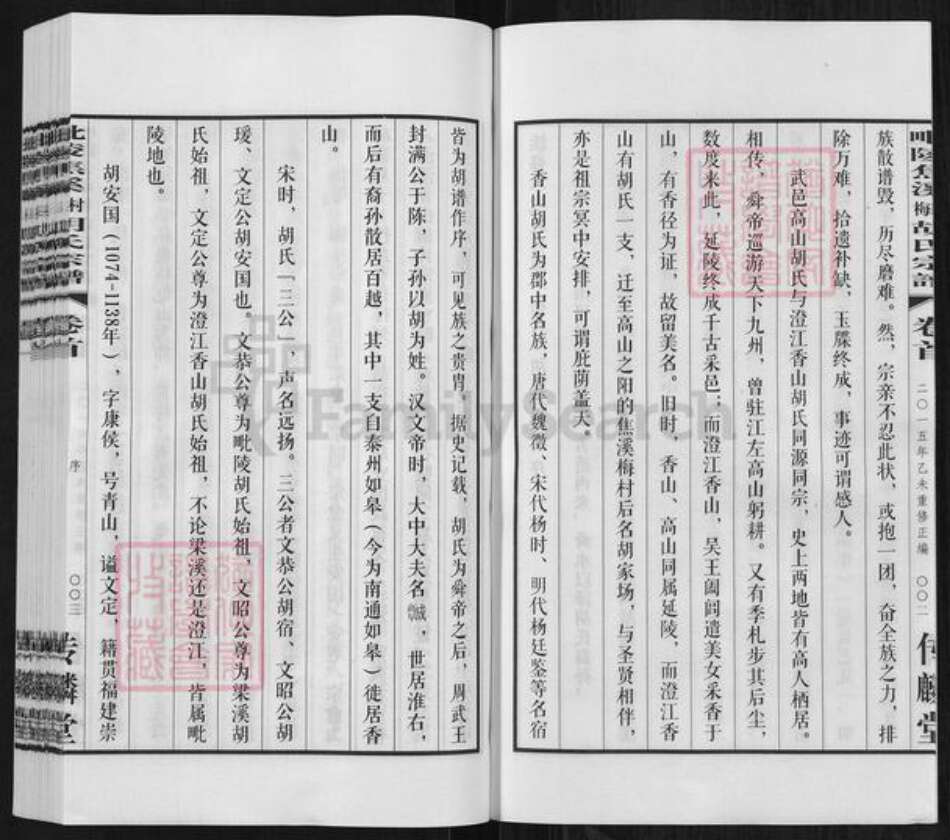 毗陵焦溪梅村胡氏宗譜
卷首
二〇一五年乙未重修正编
〇〇二
传麟堂
族散谱毁，历尽磨难。然，宗亲不忍此状，或抱一团，奋全族之力，排
除万难，拾遗补缺，玉牒终成，事迹可谓感人。
武邑高山胡氏与澄江香山胡氏同源同宗，史上两地皆有高人栖居。
相传，舜帝巡游天下九州，曾驻江左高山躬耕。又有季札步其后尘，
数度来此，延陵终成千古采邑；而澄江香山，吴王阖闾遣美女采香于
山，有香径为证，故留美名。旧时，香山、高山同属延陵，而澄江香
山有胡氏一支，迁至高山之阳的焦溪梅村后名胡家场，与圣贤相伴，
亦是祖宗冥中安排，可谓庇荫盖天。
香山胡氏为郡中名族，唐代魏徵、宋代杨时、明代杨廷鉴等名宿
皆为胡谱作序，可见族之贵胄。据史记载，胡氏为舜帝之后，周武王
封满公于陈，子孙以胡为姓。汉文帝时，大中大夫名諴，世居淮右，
而后有裔孙散居百越，其中一支自泰州如皋（今为南通如皋）徙居香
山。
宋时，胡氏「三公」，声名远扬。三公者文恭公胡宿、文昭公胡
瑗、文定公胡安国也。文恭公尊为毗陵胡氏始祖，文昭公尊为梁溪胡
氏始祖，文定公尊为澄江香山胡氏始祖，不论梁溪还是澄江，皆属毗
陵地也。
胡安国（1074-1138年），字康侯，号青山，谥文定，籍贯福建崇
胡氏宗譜
卷首
序
〇〇三
传麟堂
FamilySearch